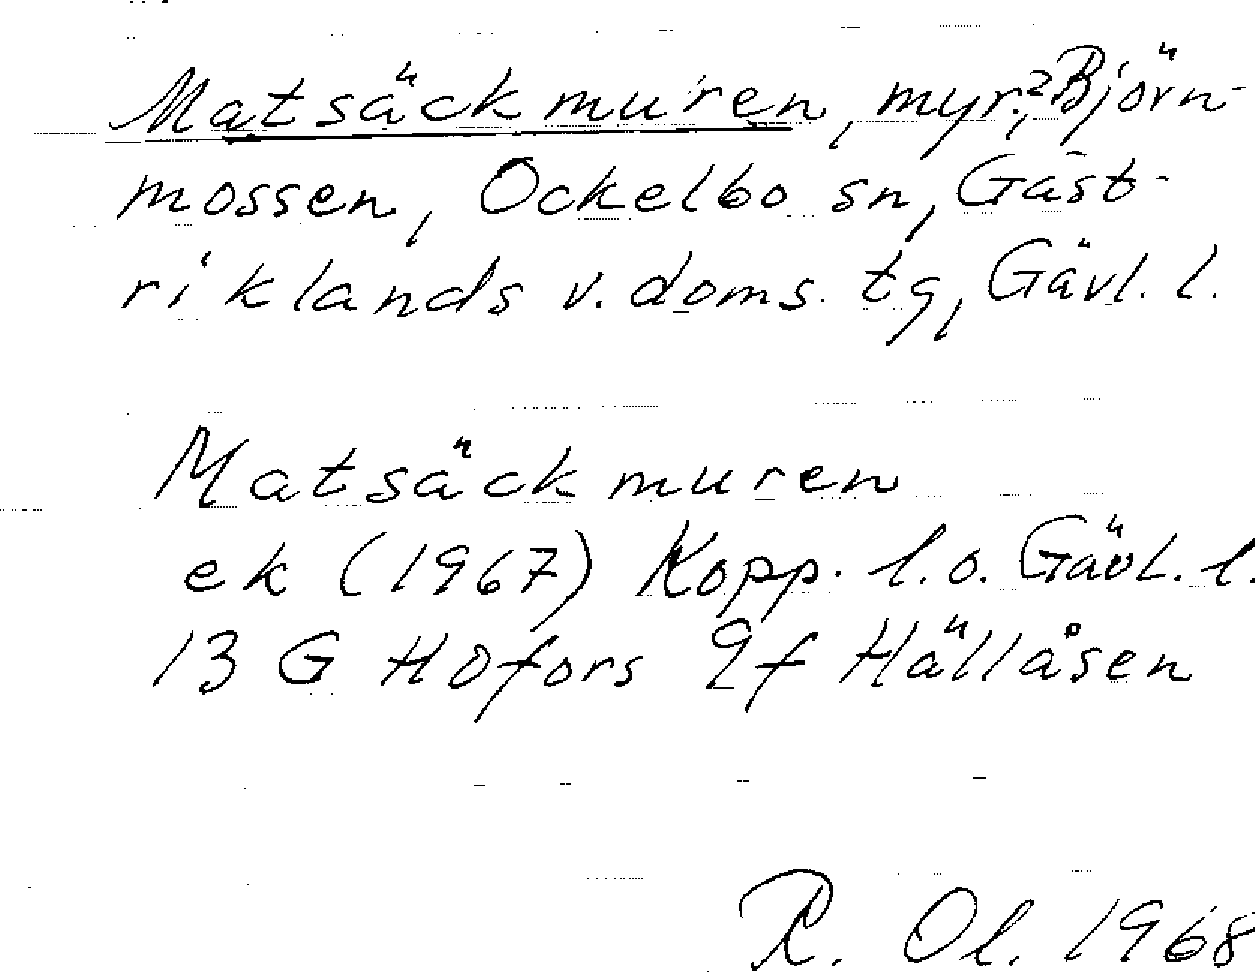 Matsäckmuren, myr,? Björn-
mossen, Ockelbo sn, Gäst-
riklands v. doms. tg, Gävl. l.
Matsäckmuren
ek (1967) Kopp. l. o. Gävl. l.
13 G Hofors 9f Hällåsen
R. Ol. 1968